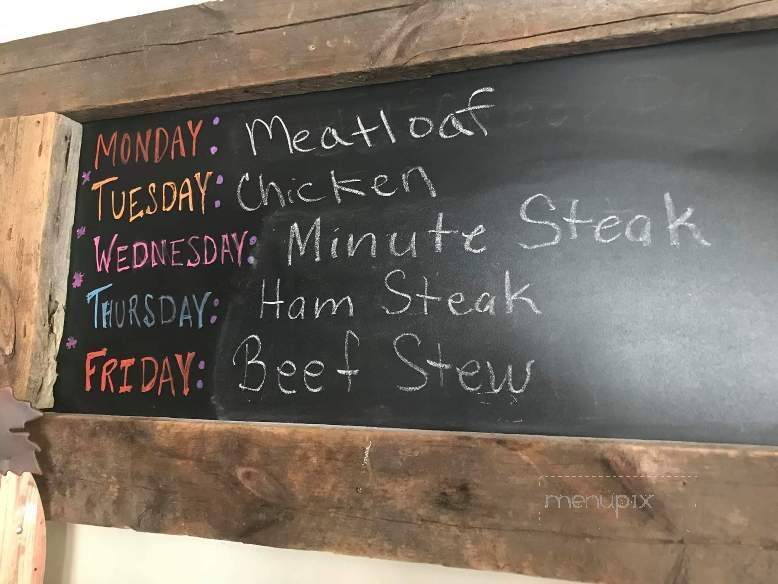 MONDAY: Meatloaf
TUESDAY: Chicken
WEDNESDAY: Minute Steak
THURSDAY: Ham Steak
FRIDAY: Beef Stew
menupix